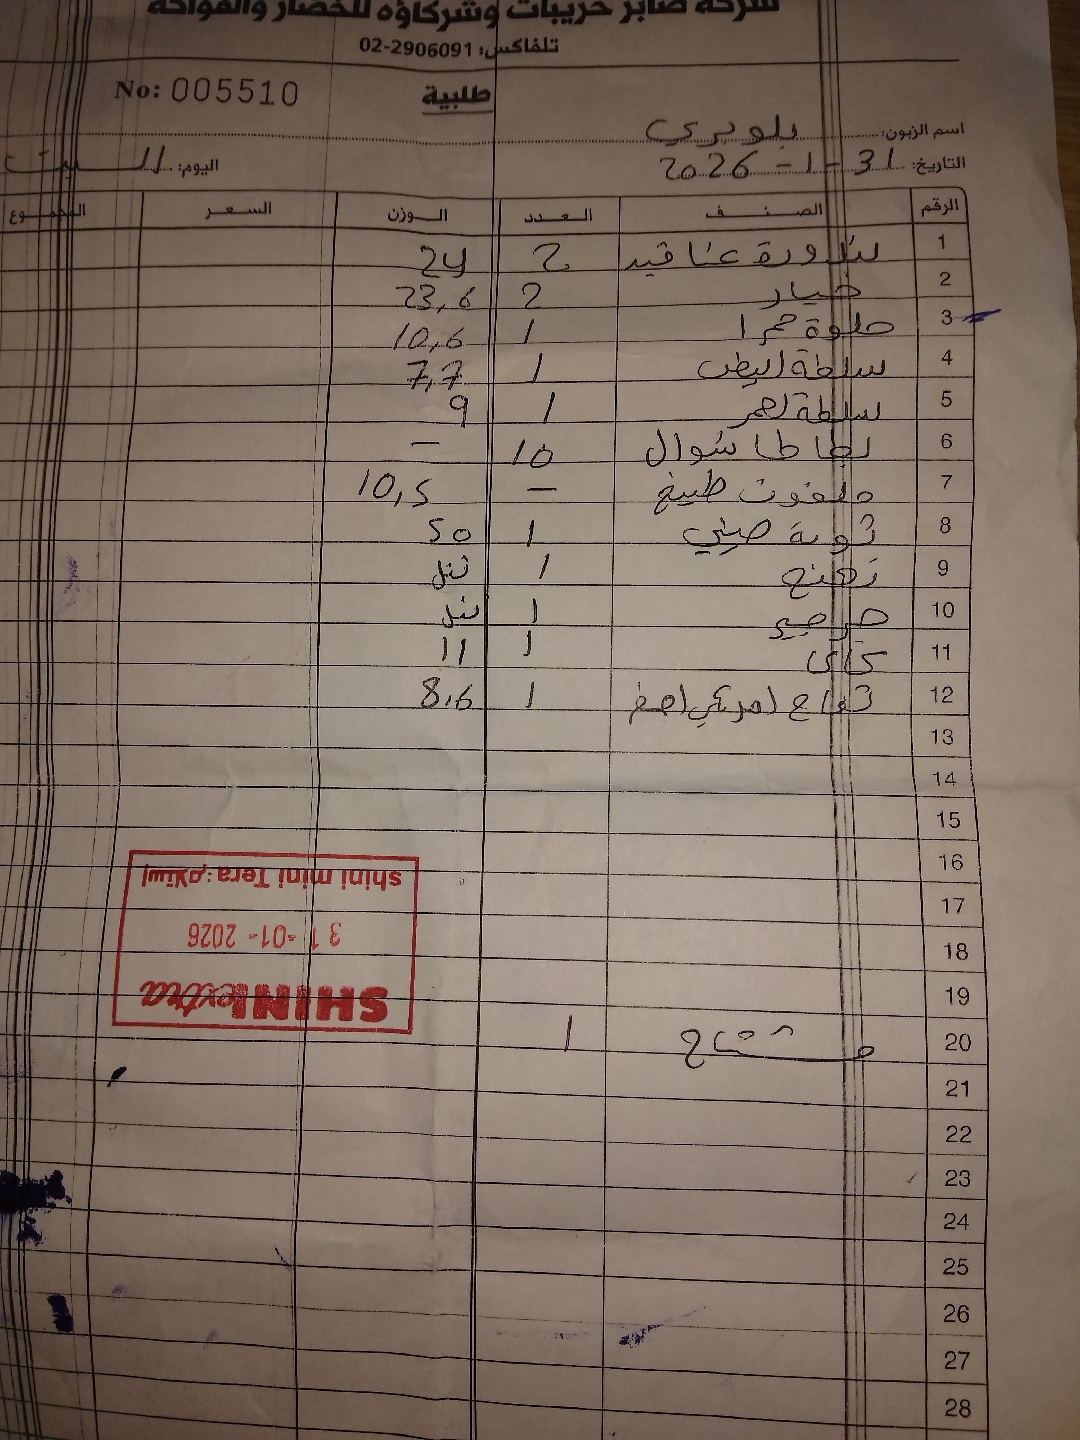 شركة صابر حريبات وشركاؤه للخضار والفواكه
تلفاكس: 02-2906091
No: 005510
طلبية
اسم الزبون: بلوبري
التاريخ: 31-1-2026 اليوم: السبت
الرقم الصنف العدد الوزن السعر المجموع
1 بندورة عناقيد 2 24
2 خيار 2 23,6
3 حلوة حمرا 1 10,6
4 سلطة ابيض 1 7,7
5 سلطة احمر 1 9
6 بطاطا شوال 10 -
7 ملفوف طبيخ - 10,5
8 ثومة صيني 1 50
9 نعنع 1
10 جرجير 1
11 1 11
12 تفاح امريكي اصفر 1 8,6
13
14
15
16
17
18
19
20 مشتاح 1
21
22
23
24
25
26
27
28
SHINI extra
31-01-2026
shini mini Tera: إستلام